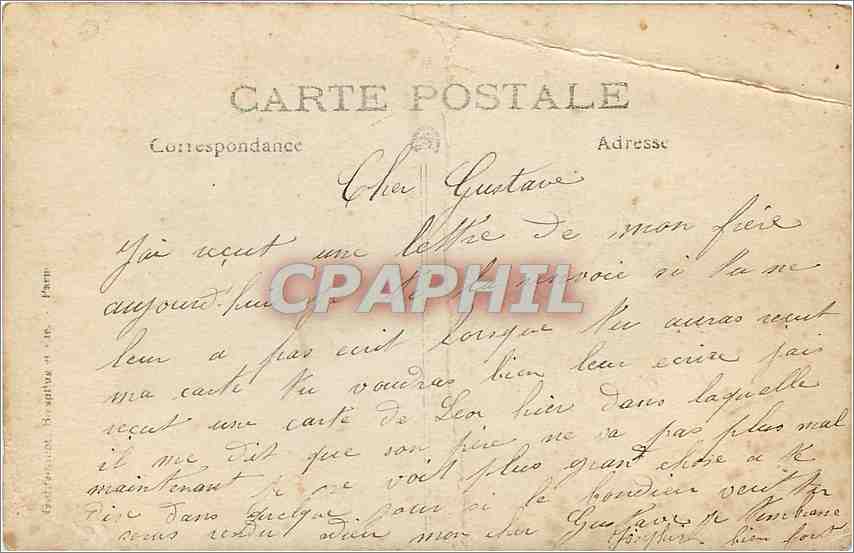 CARTE POSTALE
Correspondance
Adresse
Cher Gustave
J'ai reçut une lettre de mon frère
aujourd'hui je te la renvoie si tu ne
leur a pas écrit lorsque tu auras reçut
ma carte tu voudras bien leur écrire jais
reçut une carte de Leon hier dans laquelle
il me dit que son père ne va pas plus mal
maintenant je ne voit plus grand chose a te
dire dans quelque jour si le bondieu veut tu
nous rendu adieu mon cher Gustave je t'embrasse
bien fort
CPAPHIL
Paris